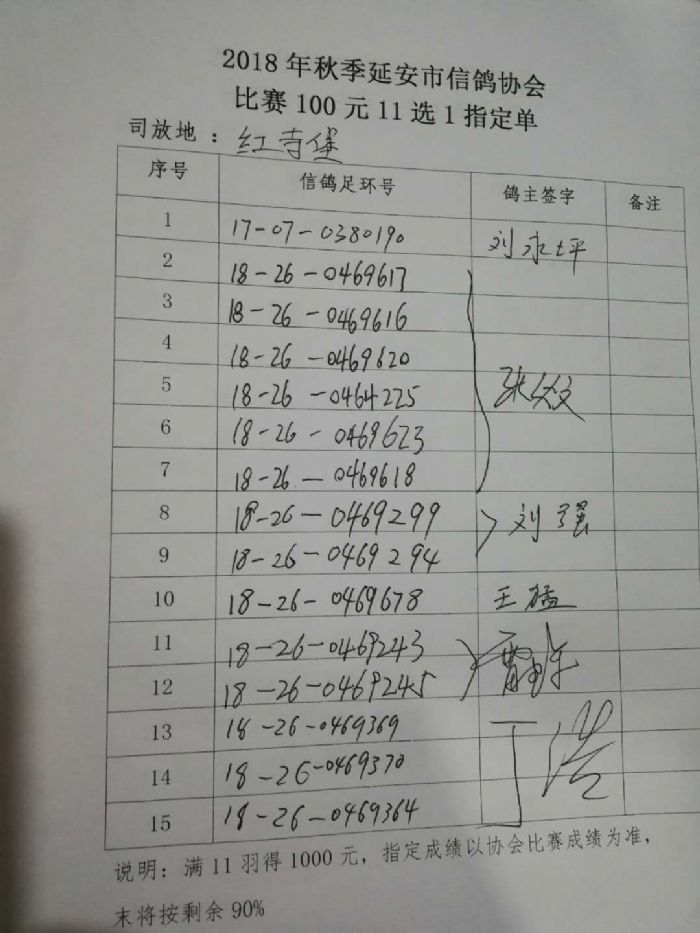 2018年秋季延安市信鸽协会
比赛100元11选1指定单
司放地：红寺堡
序号 信鸽足环号 鸽主签字 备注
1 17-07-0380190 刘永坪
2 18-26-0469617
3 18-26-0469616
4 18-26-0469620
5 18-26-0464225 张
6 18-26-0469623
7 18-26-0469618
8 18-26-0469299 刘强
9 18-26-0469294
10 18-26-0469678 王猛
11 18-26-0469243
12 18-26-0469245
13 18-26-0469369
14 18-26-0469370 丁浩
15 18-26-0469364
说明：满11羽得1000元，指定成绩以协会比赛成绩为准，
末将按剩余90%